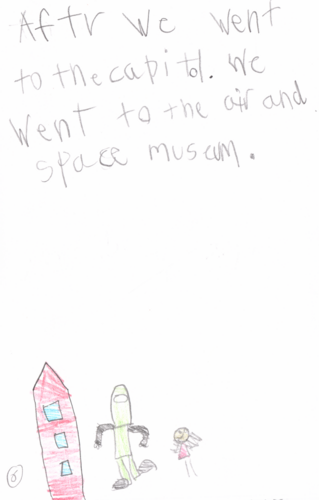 Aftr We went
to the capitol. We
Went to the air and
space museum.
6